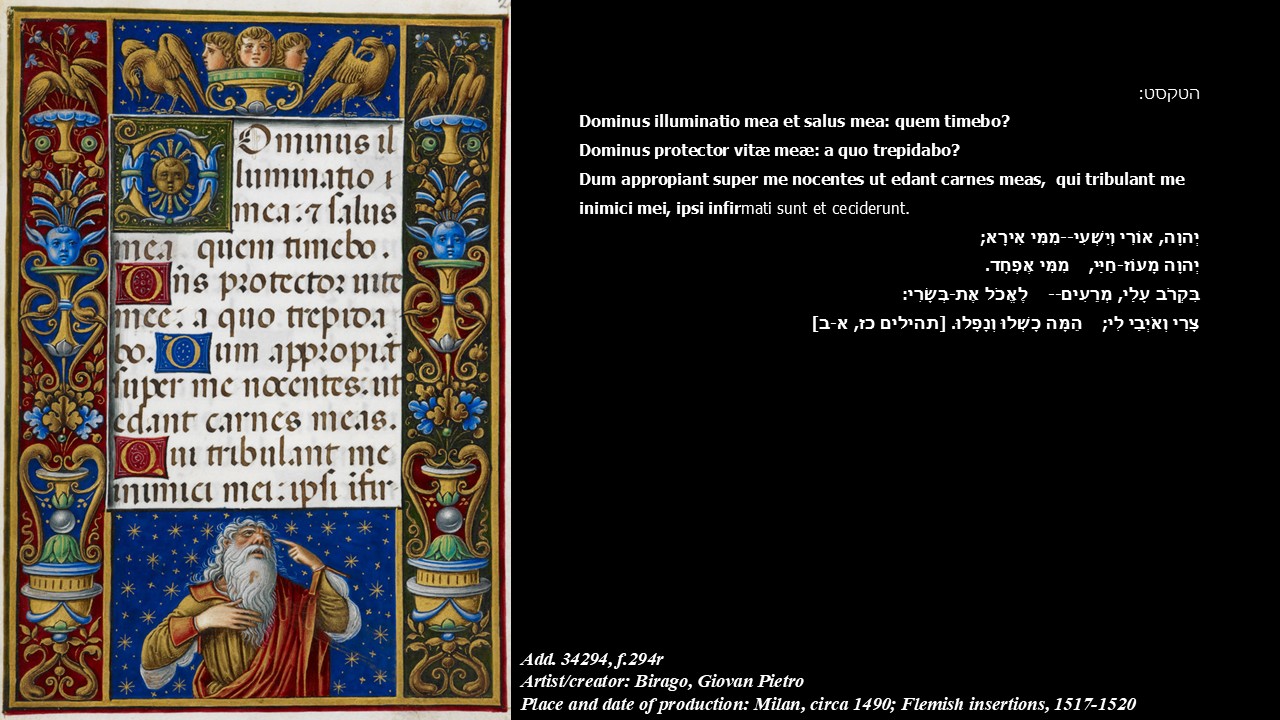 Ominus il
luminatio
mea: ⁊ salus
mea quem timebo.
Dñs protector uite
mee: a quo trepida
bo. Dum appropiãt
super me nocentes: ut
edant carnes meas.
Qui tribulant me
inimici mei: ipsi ĩfir-
הטקסט:
Dominus illuminatio mea et salus mea: quem timebo?
Dominus protector vitæ meæ: a quo trepidabo?
Dum appropiant super me nocentes ut edant carnes meas, qui tribulant me
inimici mei, ipsi infirmati sunt et ceciderunt.
יְהוָה, אוֹרִי וְיִשְׁעִי--מִמִּי אִירָא;
יְהוָה מָעוֹז-חַיַּי, מִמִּי אֶפְחָד.
בִּקְרֹב עָלַי, מְרֵעִים-- לֶאֱכֹל אֶת-בְּשָׂרִי:
צָרַי וְאֹיְבַי לִי; הֵמָּה כָשְׁלוּ וְנָפָלוּ. [תהילים כז, א-ב]
Add. 34294, f.294r
Artist/creator: Birago, Giovan Pietro
Place and date of production: Milan, circa 1490; Flemish insertions, 1517-1520